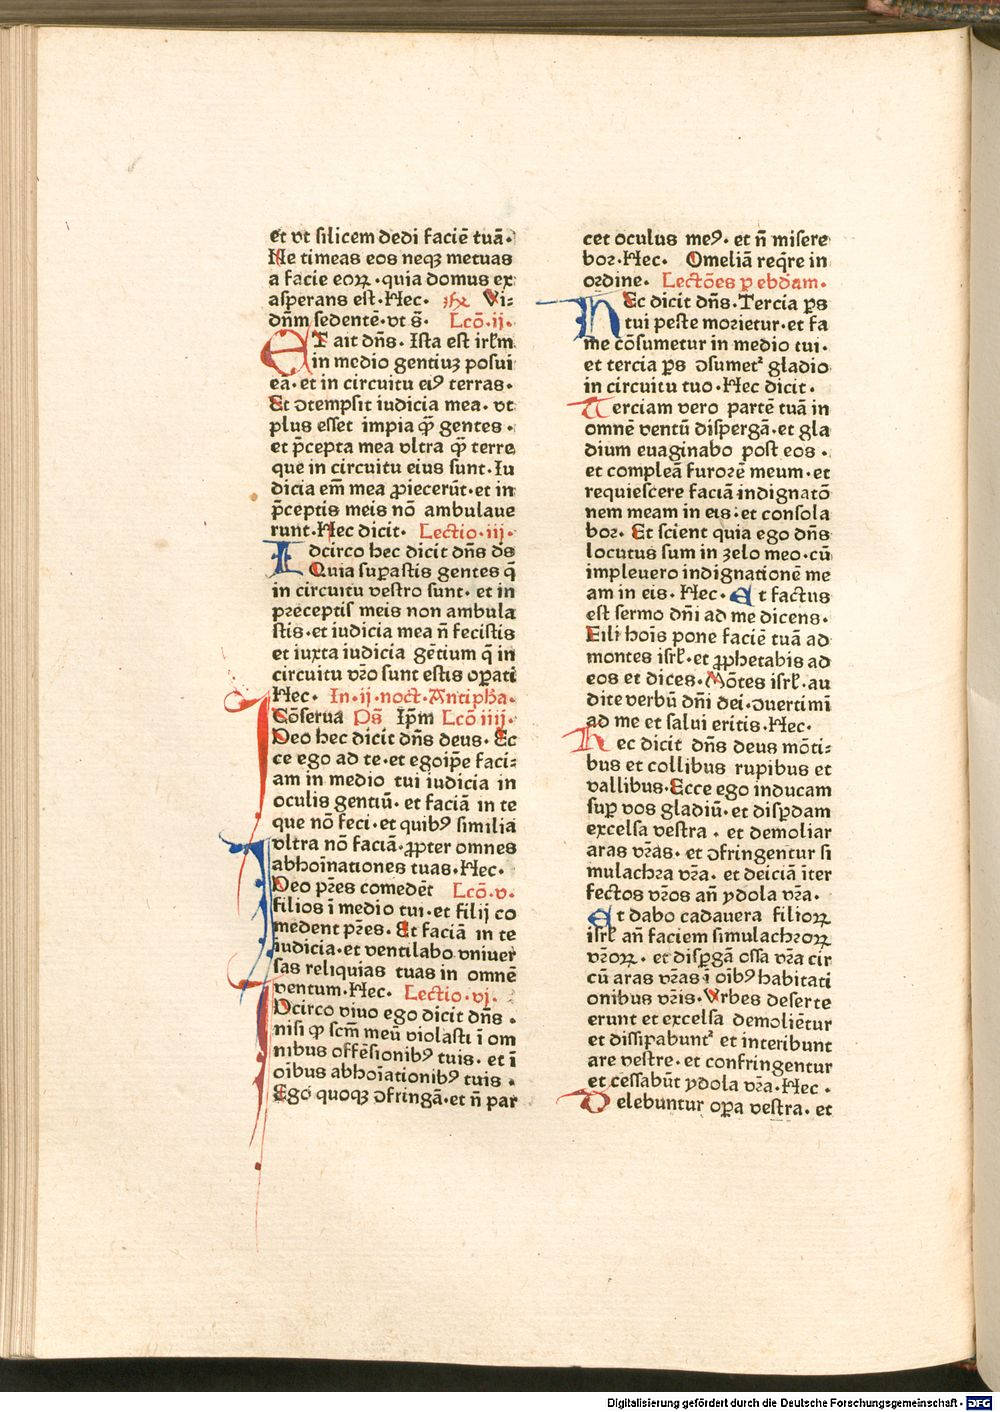 et vt silicem dedi faciē tuā.
Ne timeas eos neqꝫ metuas
a facie eoꝝ . quia domus ex
asperans est. Hec. ꝶ Vi⸗
dn̄m sedentē. vt s̄. Lcō. ij.
ET ait dn̄s. Ista est irl̄m
in medio gentiuꝫ posui
ea. et in circuitu eiꝰ terras.
Et ꝯtempsit iudicia mea. vt
plus esset impia qͣ̄ gentes .
et p̄cepta mea vltra qͣ̄ terre
que in circuitu eius sunt. Iu
dicia em̄ mea ꝓiecerūt. et in
p̄ceptis meis nō ambulaue
runt. Hec dicit. Lectio. iij.
Idcirco hec dicit dn̄s ds
Quia suꝑastis gentes q̄
in circuitu vestro sunt. et in
preceptis meis non ambula
stis. et iudicia mea n̄ fecistis
et iuxta iudicia gētium q̄ in
circuitu vr̄o sunt estis oꝑati
Hec. In. ij. noct. Antipha.
Cōserua Ps̄ Ip̄m Lcō iiij.
IDeo hec dicit dn̄s deus. Ec
ce ego ad te. et egoip̄e faci⸗
am in medio tui iudicia in
oculis gentiū. et faciā in te
que nō feci. et quibꝰ similia
vltra nō faciā. ꝓpter omnes
abhoīnationes tuas. Hec.
IDeo pr̄es comedēt Lcō. v.
filios ī medio tui. et filij co
medent pr̄es. Et faciā in te
iudicia. et ventilabo vniuer
sas reliquias tuas in omnē
ventum. Hec. Lectio. vj.
IDcirco viuo ego dicit dn̄s .
nisi ꝙ scm̄ meū violasti ī om
nibus offēsionibꝰ tuis. et ī
oībus abhoīationibꝰ tuis .
Ego quoqꝫ ꝯfringā. et n̄ par
cet oculus meꝰ. et n̄ misere
bor. Hec. Omeliā reqͥre in
ordine. Lectōes ꝑ ebdam.
HEc dicit dn̄s. Tercia ꝑs
tui peste morietur. et fa
me cōsumetur in medio tui.
et tercia ꝑs ꝯsumetᷣ gladio
in circuitu tuo. Hec dicit.
Terciam vero partē tuā in
omnē ventū dispergā. et gla
dium euaginabo post eos .
et compleā furorē meum. et
requiescere faciā indignatō
nem meam in eis: et consola
bor. Et scient quia ego dn̄s
locutus sum in zelo meo. cū
impleuero indignationē me
am in eis. Hec. Et factus
est sermo dn̄i ad me dicens.
Fili hoīs pone faciē tuā ad
montes isrl̄. et ꝓphetabis ad
eos et dices. Mōtes isrl̄. au
dite verbū dn̄i dei. ꝯuertimī
ad me et salui eritis. Hec.
Hec dicit dn̄s deus mōti⸗
bus et collibus rupibus et
vallibus. Ecce ego inducam
suꝑ vos gladiū. et disꝑdam
excelsa vestra . et demoliar
aras vr̄as. et ꝯfringentur si
mulachra vr̄a. et deiciā īter
fectos vr̄os an̄ ydola vr̄a.
Et dabo cadauera filioꝝ
isrl̄ an̄ faciem simulachroꝝ
vr̄oꝝ. et disꝑgā ossa vr̄a cir
cū aras vr̄as ī oībꝰ habitati
onibus vr̄is. Vrbes deserte
erunt et excelsa demoliētur
et dissipabuntᷣ et interibunt
are vestre. et confringentur
et cessabūt ydola vr̄a. Hec .
Delebuntur oꝑa vestra. et
Digitalisierung gefördert durch die Deutsche Forschungsgemeinschaft - DFG